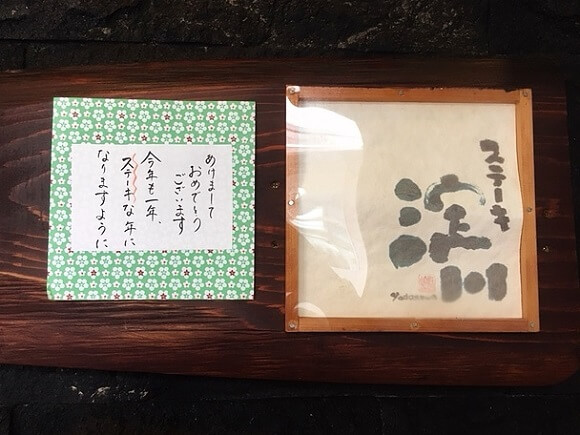 あけまして
おめでとう
ございます
今年も一年、
ステーキな年に
なりますように
ステーキ
淀川
Yodogawa